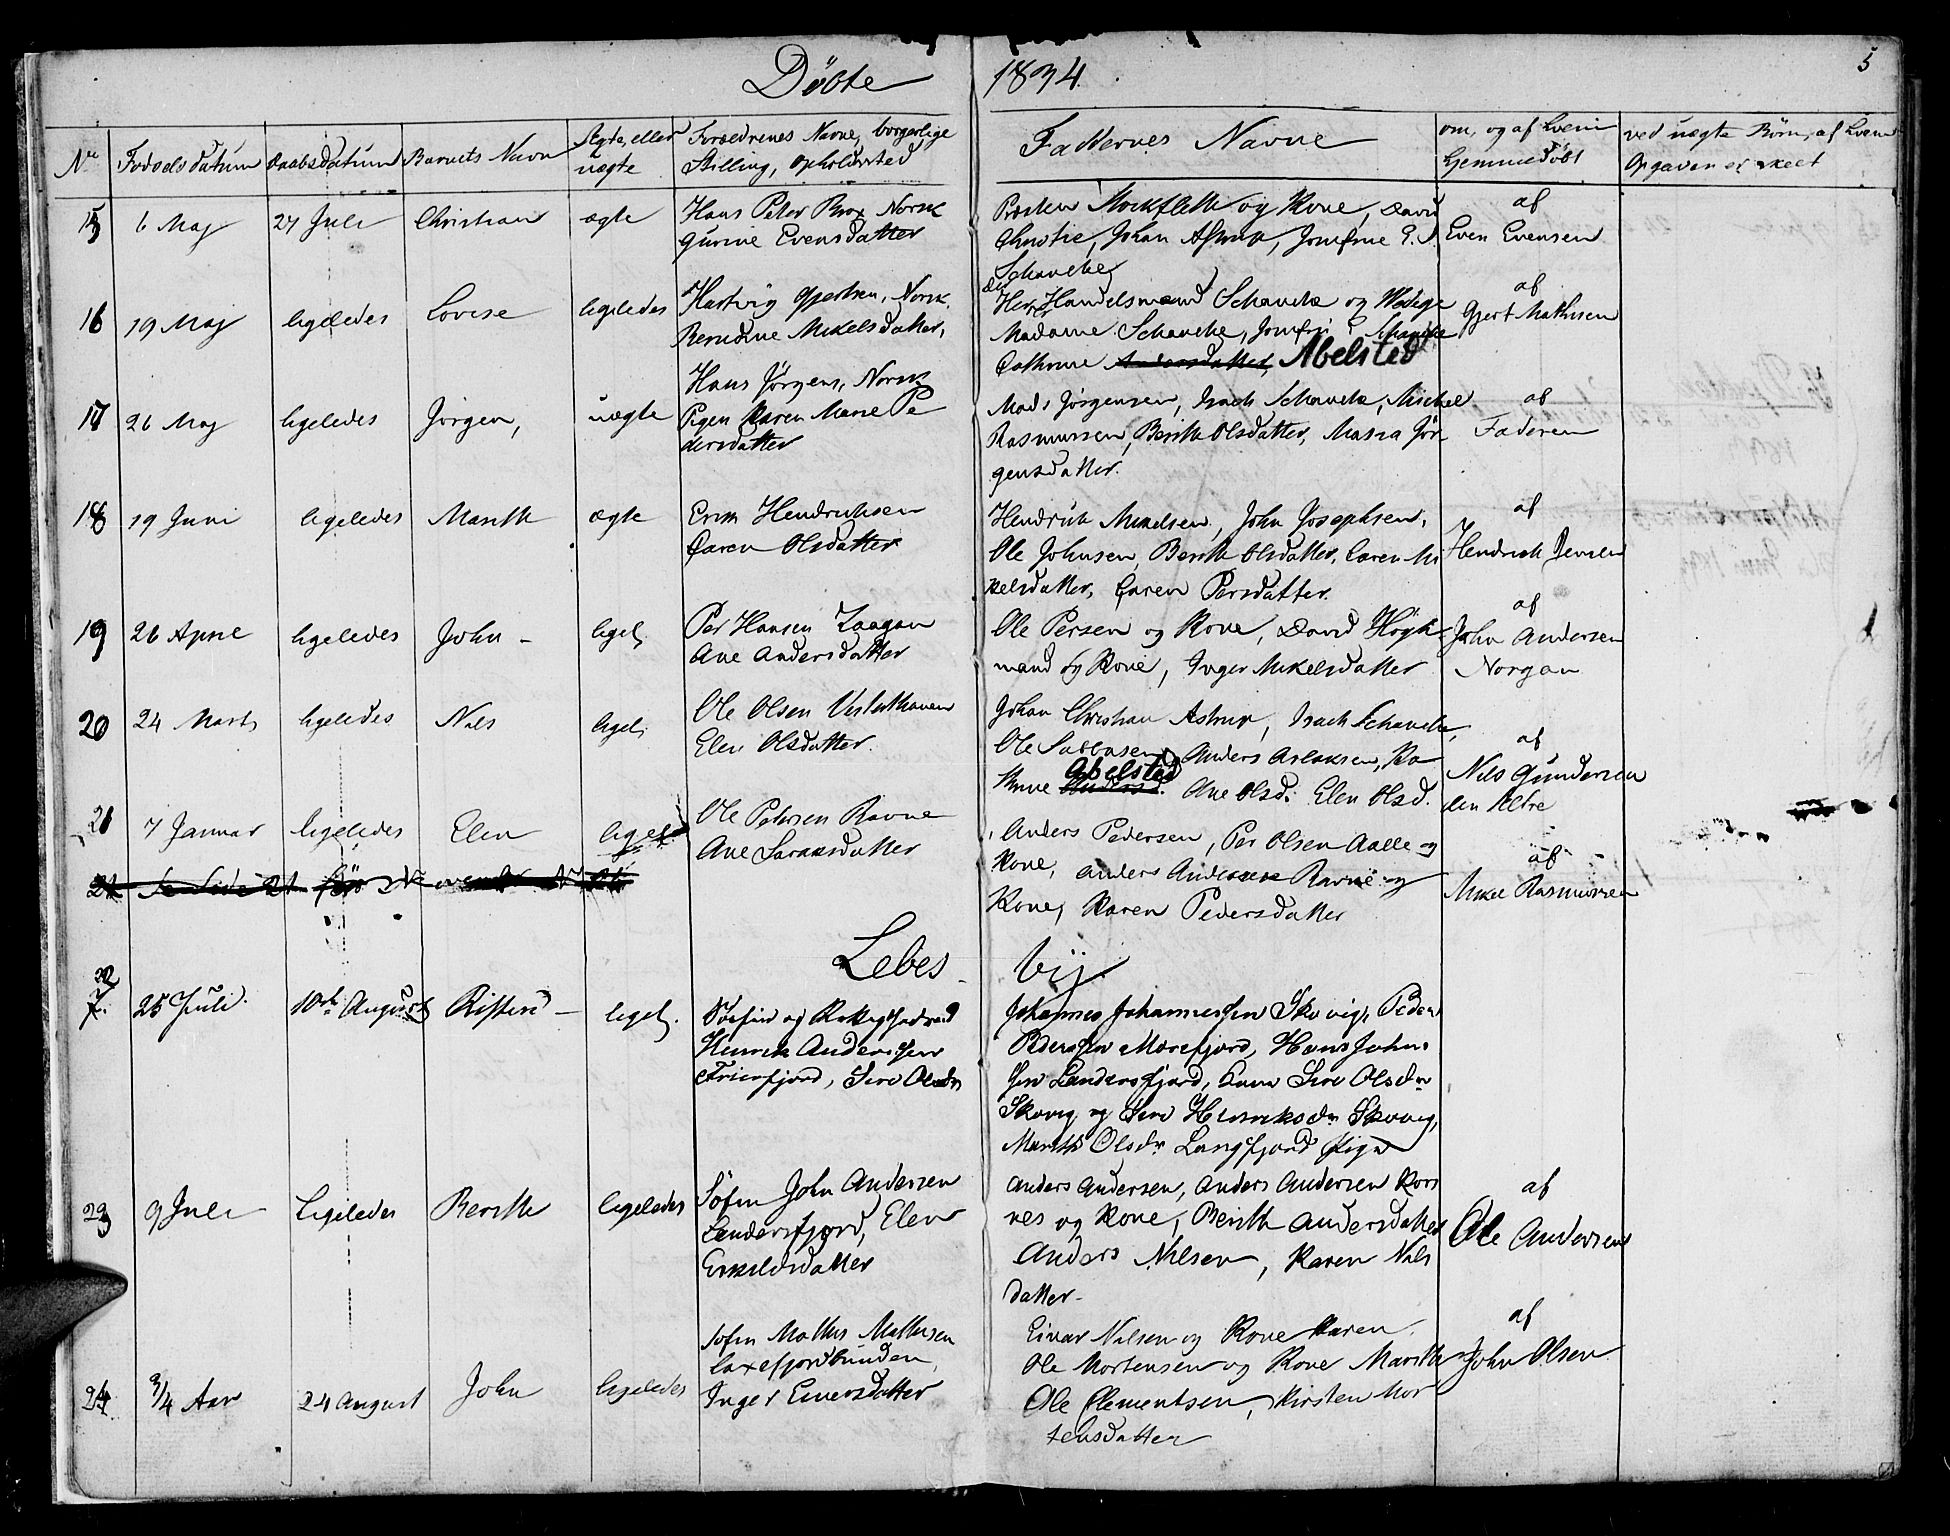 Døbte 1834.
5
No
Fødselsdatum
Daabsdatum
Barnets Navn
Ægte, eller
uægte
Forældrenes Navne, borgerlige
Stilling, Opholdsted
Faddernes Navne
om, og af hvem
hjemmedøbt
ved uægte Børn, af hvem
Opgaven er skeet
15
6 Maj
27 Juli
Christian
ægte
Hans Peter Brox Norsk
Gurine Evensdatter
Præsten Stockfleth og Kone, David
Christie, Johan Astrup, Jomfrue
Schancke
af
Even Evensen
16
19 Maj
ligeledes
Lovise
ligeledes
Hartvig Gjertsen, Norsk.
Berndine Mikelsdatter,
Handelsmand Schancke og
Madame Schancke, Jomfru Schancke
Cathrine Andersdatter, Abelsted
af
Gjert Mathisen
17
26 Maj
ligeledes
Jørgen,
uægte
Hans Jørgens, Norsk
Pigen Karen Marie Pe
dersdatter
Mads Jørgensen, Isach Schancke, Michel
Rasmussen, Berith Olsdatter, Masia Jør
gensdatter.
af
Faderen
18
19 Juni
ligeledes
Marith
ægte
Erik Hendrichsen
Caren Olsdatter
Hendrik Mikelsen, John Josephsen,
Ole Johnsen, Berith Olsdatter, Caren Mi
kelsdatter, Caren Persdatter.
af
Hendrich Jensen
19
26 April
ligeledes
John -
ligel.
Per Hansen
Ane Andersdatter
Ole Persen og Kone, David Høgh
mand og Kone, Inger Mikelsdatter
af
John Andersen
Norgan
20
24 Marts
ligeledes
Nils
ligel.
Ole Olsen Vesterthanen
Elen Olsdatter.
Johan Christian Astrup, Isach Schancke,
Ole Sabbasen, Anders Aslaksen, Ka
thrine Andersd. Abelsted Ane Olsd. Elen Olsd.
af
Nils Gundersen
den Ældre
21
7 Januar
ligeledes
Elen
ligel.
Ole Petersen Ravne
Ane Sarasdatter
Anders Pedersen, Per Olsen Aalle og
Kone, Anders Andersen Ravne og
Kone, Karen Pedersdatter
af
Mikel Rasmussen
Lebesbÿ.
22
25 Juli.
10de August
Risten -
ligel.
Søefin og
Henrik Anderssen
Frierfjord, Siri Olsdr
Johannes Johannessen Skovig, Peder
Pederssen Mårefjord, Hans John-
sen Landersfjord, Siri Olsdr
Skovig og Siri Henriksdr Skovig,
Marith Olsdr Langfjord Pige
23
9 Juli
Ligeledes
Berith
ligeledes
Søfin John Andersen
Lendersfjord, Elen
Erikildsdatter
Anders Andersen, Anders Andersen Kors
nes og Kone, Berith Andersdatter
Anders Nilsen, Karen Nils
datter.
af
Ole Andersen
24
3/4 Aar
24 August
John
ligeledes
Søfin Mathis Mathisen
Laxefjordbunden,
Inger Einersdatter
Einar Nilsen og Kone Karen
Ole Mortensen og Kone Marith
Ole Clementsen, Kirsten Mor
tensdatter
af
John Olsen